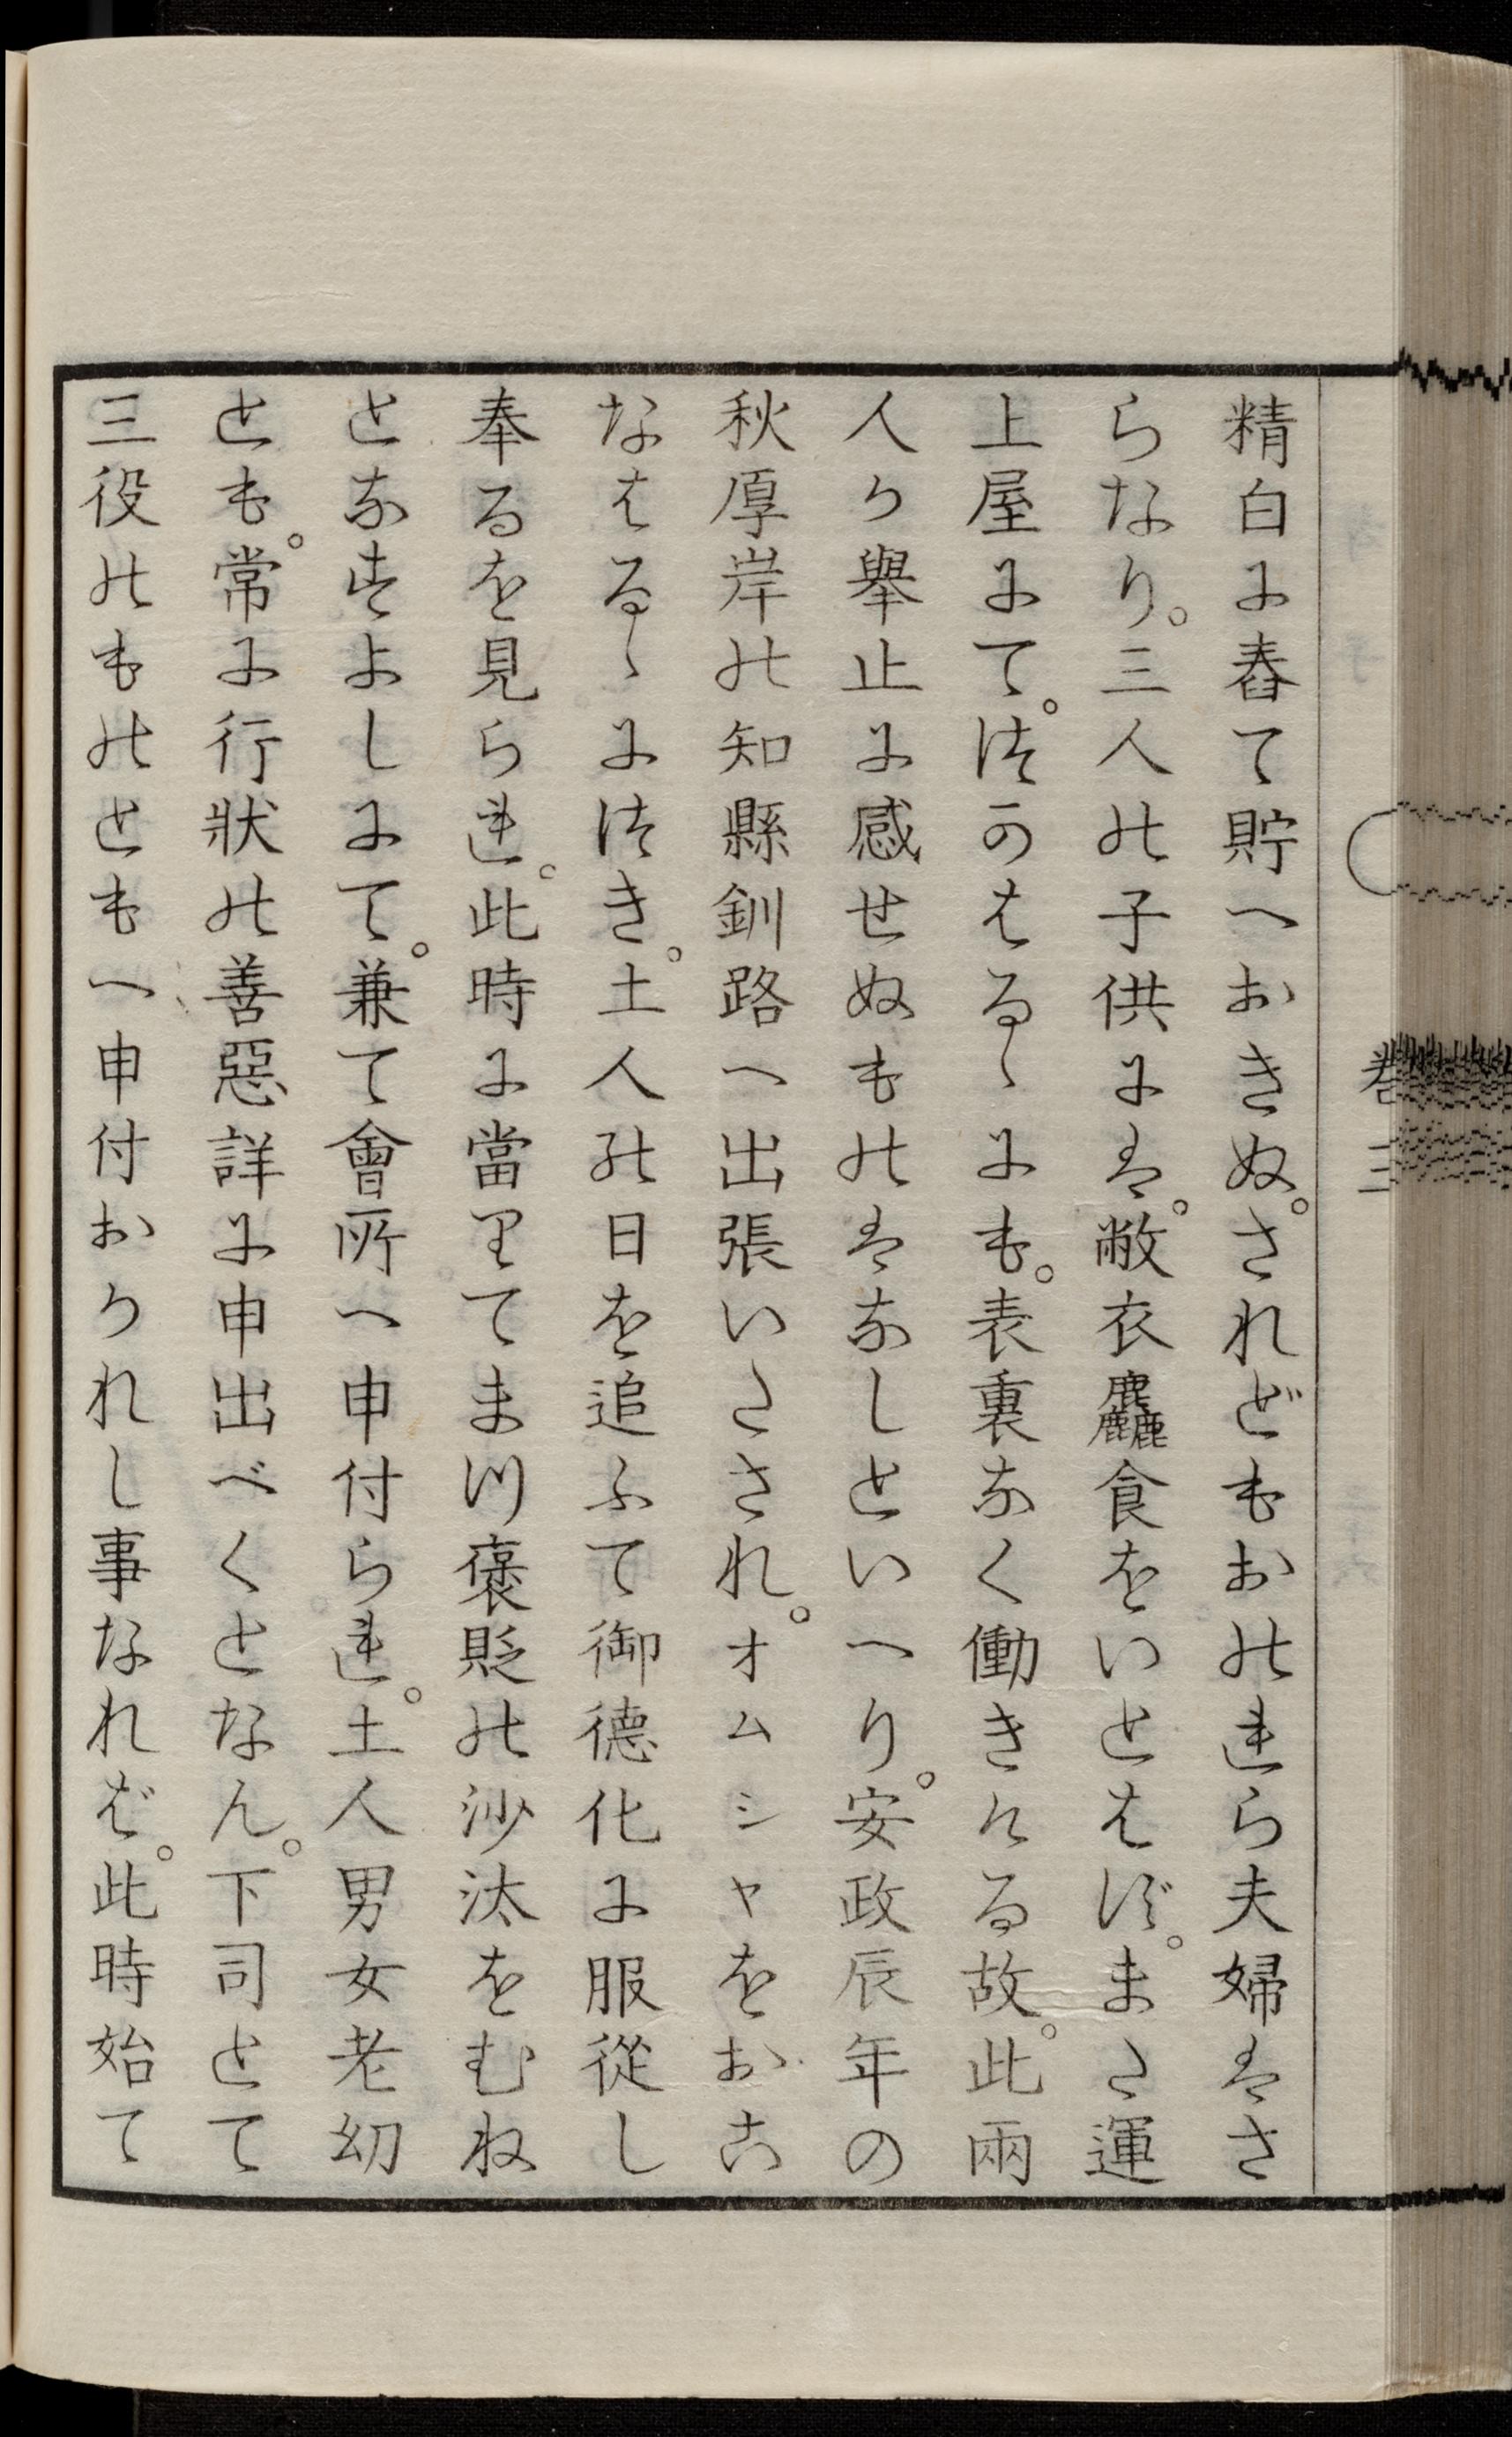 精白に舂て貯へおきぬ。されどもおのれら夫婦はさ
らなり。三人の子供には。敝衣麤食をいとはず。また運
上屋にて。つかはるゝにも。表裏なく働きける故。此兩
人か舉止に感せぬものはなしといへり。安政辰年の
秋厚岸の知縣釧路へ出張いたされ。オムシヤをおこ
なはるゝにつき。土人の日を追ふて御德化に服從し
奉るを見られ。此時に當りてまつ褒貶の沙汰をむね
となすよしにて。兼て會所へ申付られ。土人男女老幼
とも。常に行狀の善惡詳に申出べくとなん。下司とて
三役のものともへ申付おかれし事なれば。此時始て
卷三